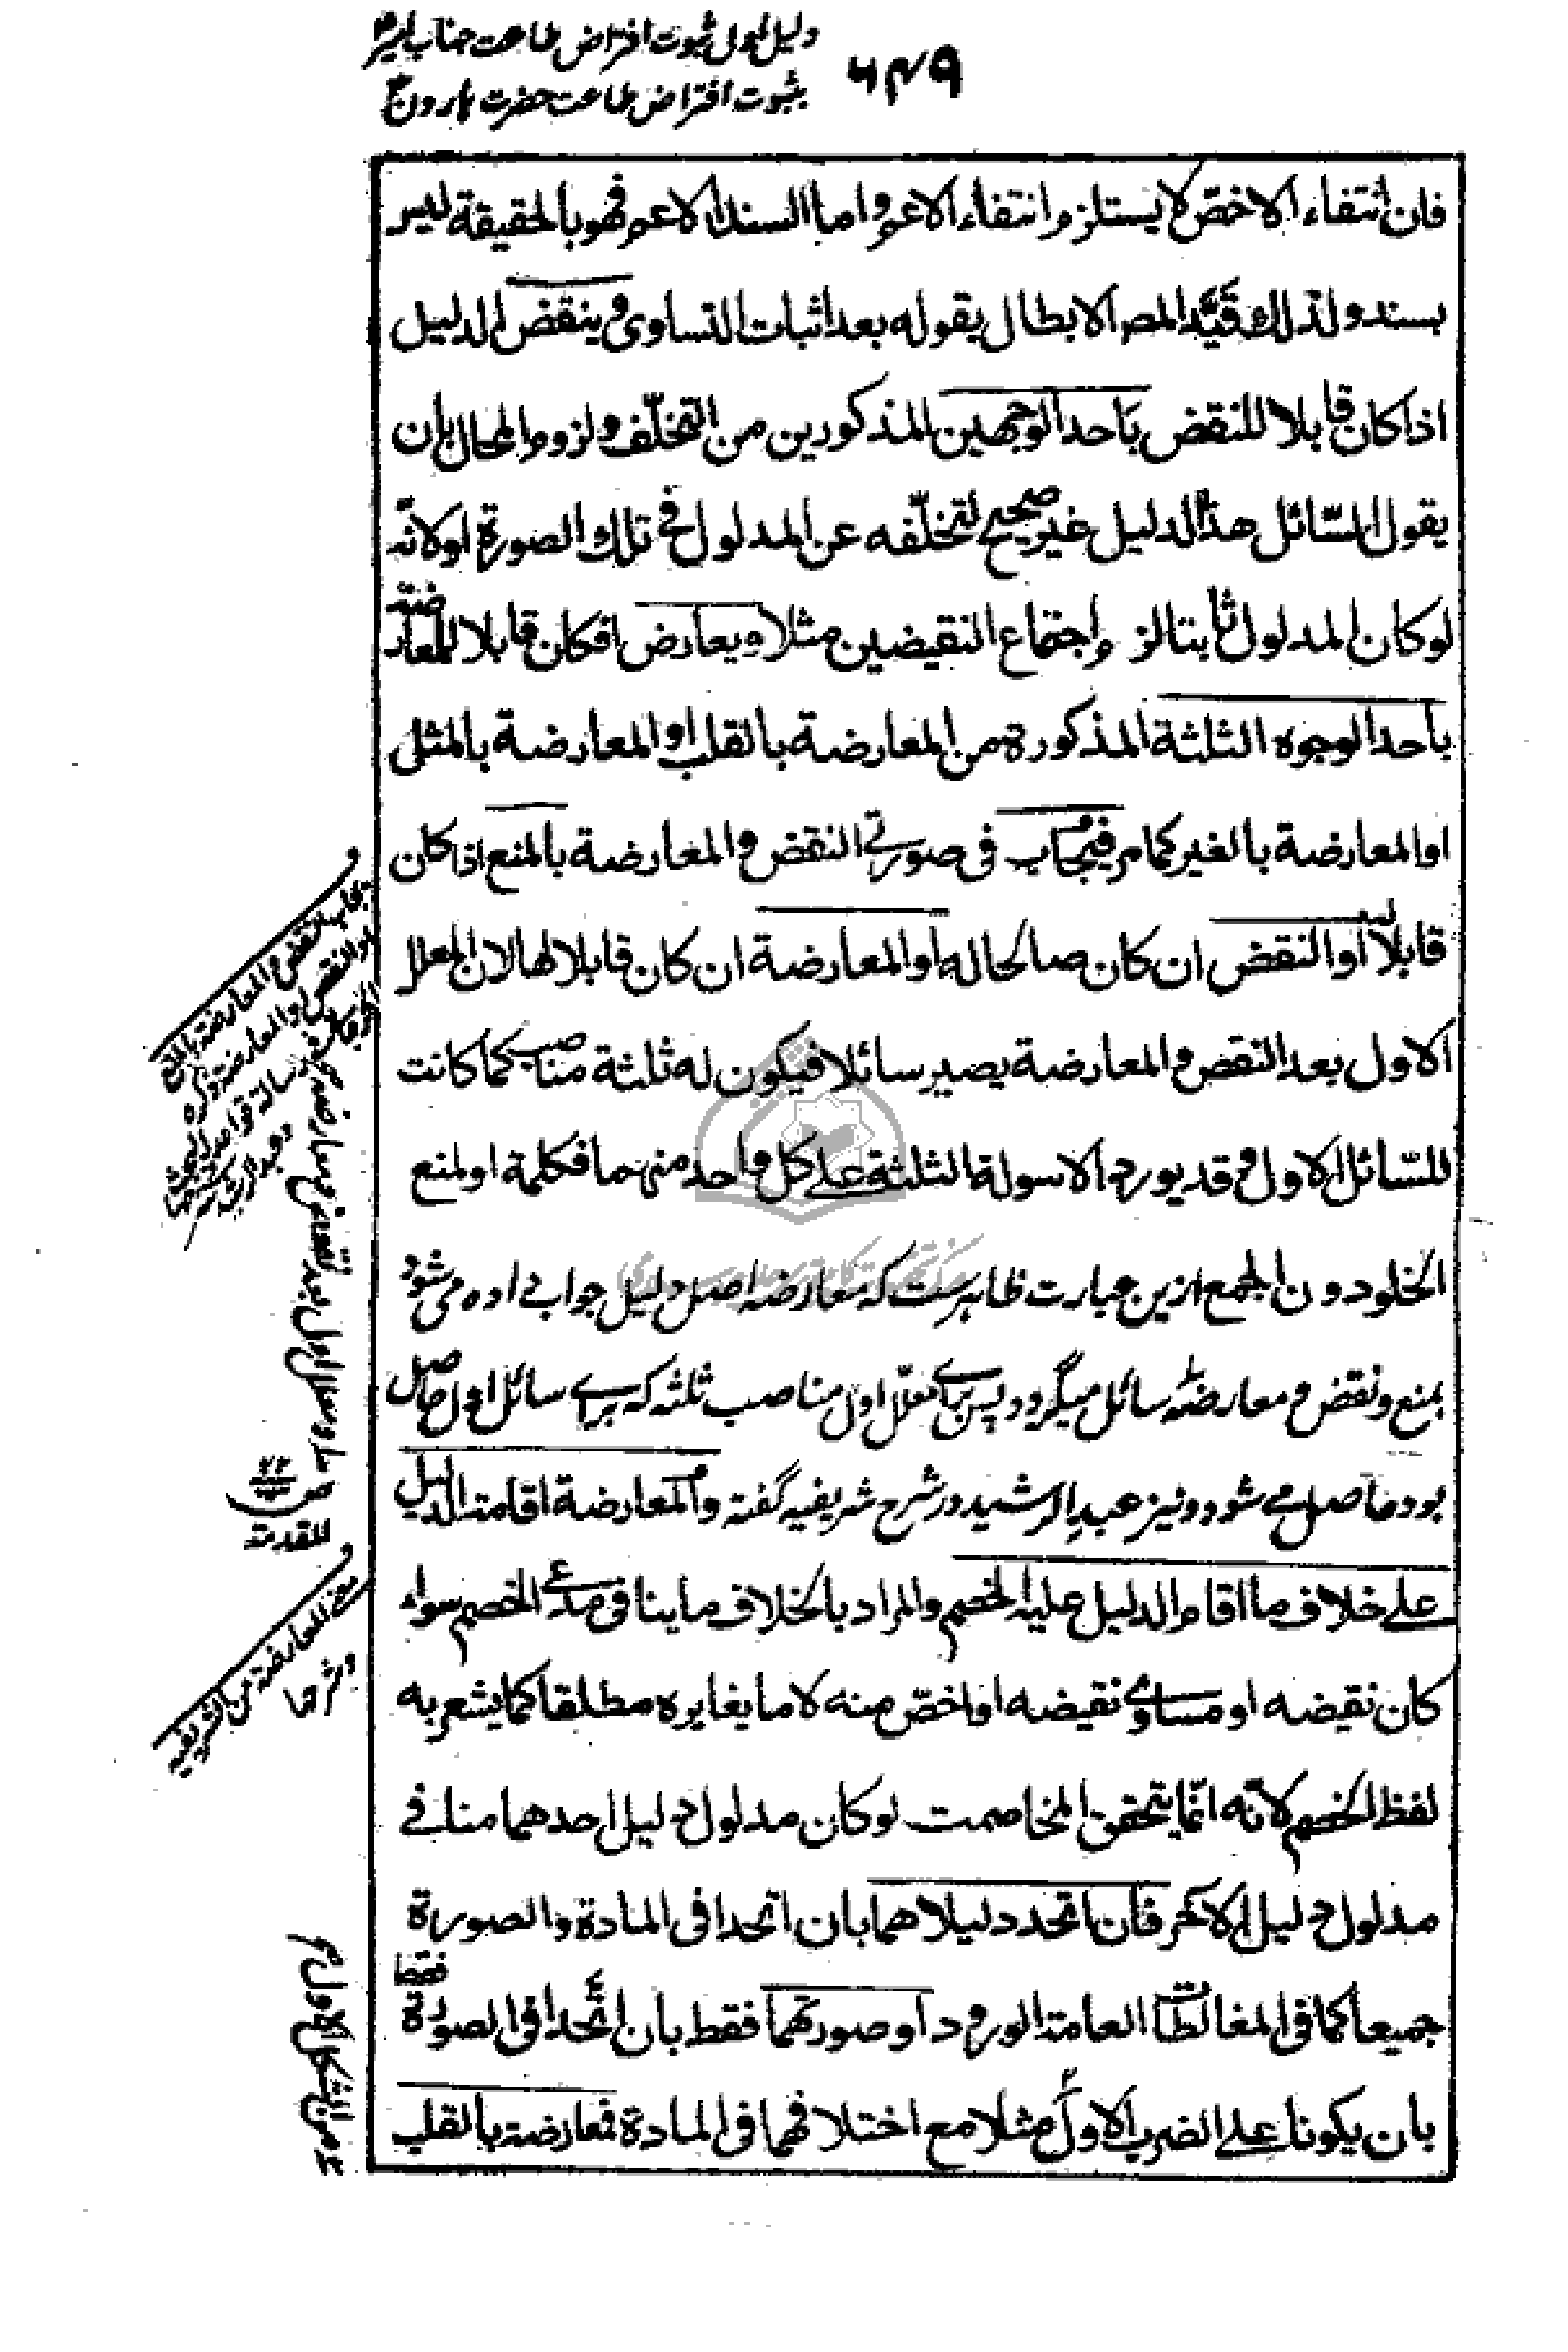 دلیل اول ثبوت افتراض طاعت جناب امیرؑ
بثبوت افتراض طاعت حضرت هارونؑ
۶۴۹
فان انتفاء الاخصّ لا يستلزم انتفاء الاعم و اما السند الاعم فهو بالحقيقة ليس
بسند و لذلك قيّد المصر الابطال بقوله بعد اثبات التساوى و ينقض الدليل
اذا كان قابلا للنقض باحد الوجهين المذكورين من التخلّف و لزوم المحال بان
يقول السّائل هذا الدليل غير صحيح لتخلّفه عن المدلول فى تلك الصورة او لانّه
لو كان المدلول ثابتا لزم اجتماع النقيضين مثلا و يعارض اذ كان قابلا للمعارضة
باحد الوجوه الثلثة المذكورة من المعارضة بالقلب او المعارضة بالمثل
او المعارضة بالغير كما مر فيجاب فى صورتي النقض و المعارضة بالمنع اذا كان
قابلا له او النقض ان كان صالحا له او المعارضة ان كان قابلا لها لان المعلل
الاول بعد النقض و المعارضة يصير سائلا فيكون له ثلثة مناصب كما كانت
للسّائل الاول و قد يورد الاسولة الثلثة على كل واحد منهما فكلمة او لمنع
الخلو دون الجمع ازين عبارت ظاهرست كه معارضه اصل دليل جواب داده می شود
بمنع و نقض و معارضه سائل ميگردد پس برای معلّل اول مناصب ثلثه كه برای سائل اول حاصل
بود حاصل می شود و نيز عبد الرشيد در شرح شريفيه گفته و المعارضة اقامة الدليل
على خلاف ما اقام الدليل عليه الخصم و المراد بالخلاف ما ينافى مدعى الخصم سواء
كان نقيضه او مساوى نقيضه او اخصّ منه لا ما يغايره مطلقا كما يشعر به
لفظ الخصم لانّه انّما يتحقق المخاصمت لو كان مدلول دليل احدهما منافى
مدلول دليل الآخر فان اتحد دليلاهما بان اتحدا فى المادة و الصورة
جميعا كما فى المغالطات العامة الورود او صورتهما فقط بان اتّحدا فى الصورة فقط
بان يكونا على الضرب الاول مثلا مع اختلافهما فى المادة فمعارضة بالقلب
يجاب النقض و المعارضة بالمنع
او النقض او المعارضة
للمقدمة
معنى المعارضة من الشريفيه
و شرحها
من الشكل الاول